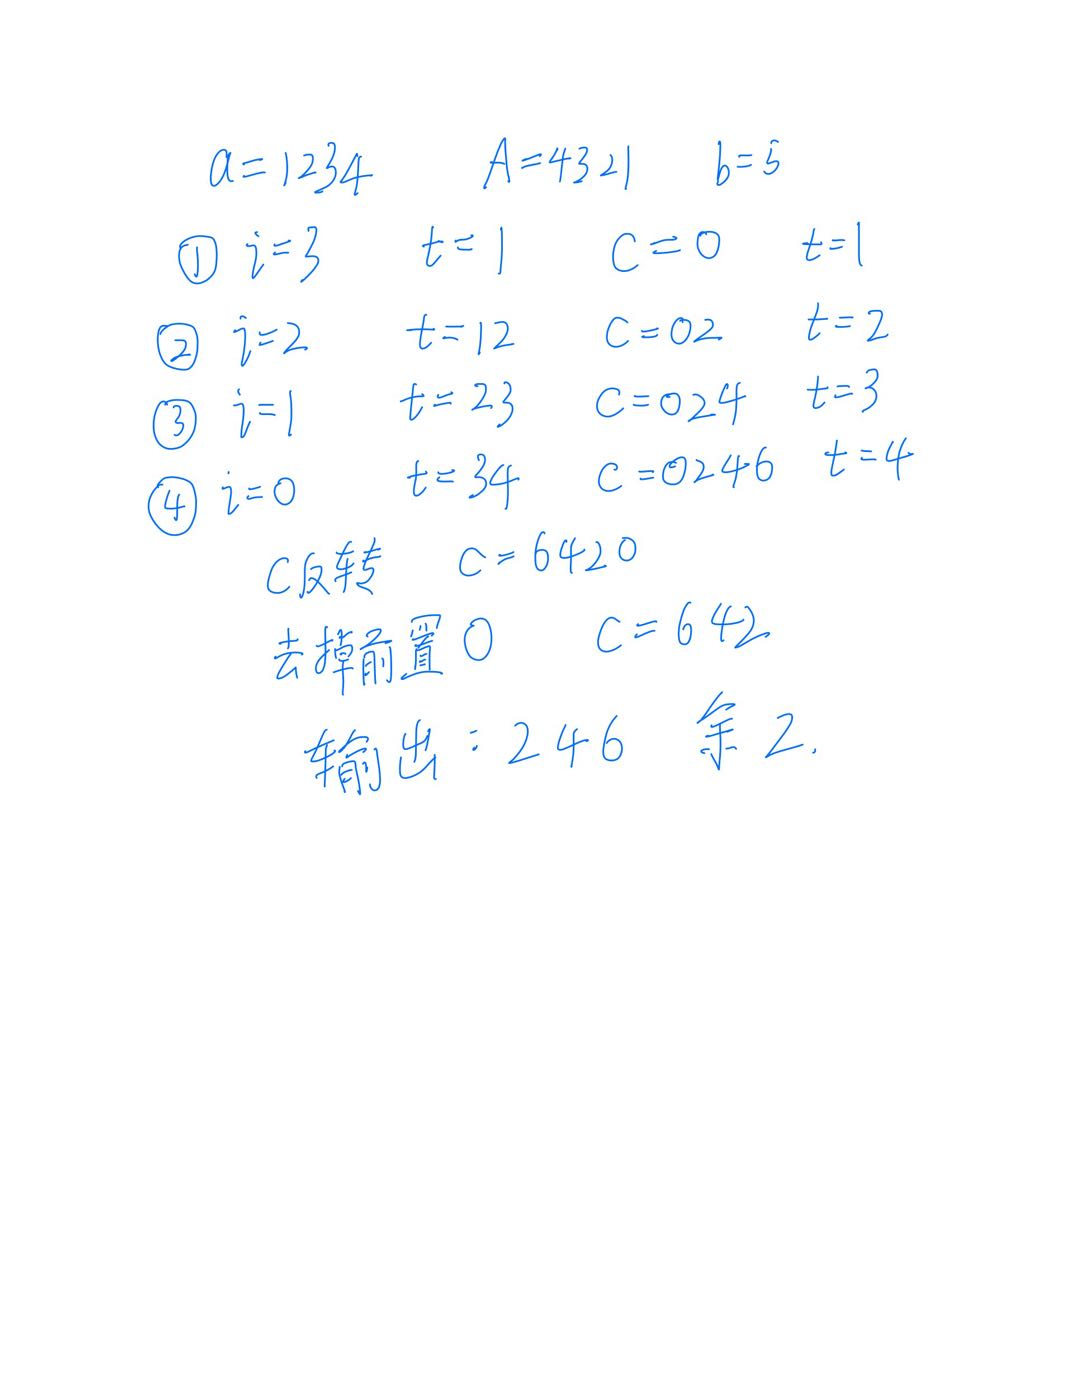 a=1234 A=4321 b=5
① i=3 t=1 C=0 t=1
② i=2 t=12 C=02 t=2
③ i=1 t=23 C=024 t=3
④ i=0 t=34 C=0246 t=4
C反转 C=6420
去掉前置0 C=642
输出:246 余2.